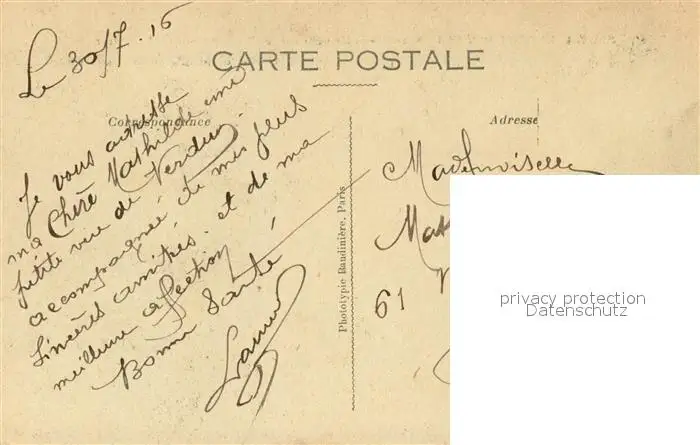 Le 30/7.16
CARTE POSTALE
Correspondance
Adresse
Je vous adresse
ma chère Mathilde une
petite vue de Verdun.
accompagnée de mes plus
sincères amitiés. et de ma
meilleure affection
Bonne Santé
Mademoiselle
61
Phototypie Baudinière, Paris
privacy protection
Datenschutz